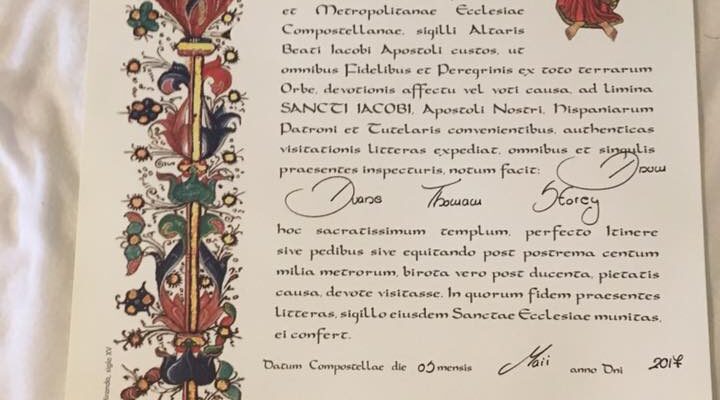 et Metropolitanae Ecclesiae
Compostellanae, sigilli Altaris
Beati Iacobi Apostoli custos, ut
omnibus Fidelibus et Peregrinis ex toto terrarum
Orbe, devotionis affectu vel voti causa, ad limina
SANCTI IACOBI, Apostoli Nostri, Hispaniarum
Patroni et Tutelaris convenientibus, authenticas
visitationis litteras expediat, omnibus et singulis
praesentes inspecturis, notum facit:
Storey
hoc sacratissimum templum, perfecto Itinere
sive pedibus sive equitando post postrema centum
milia metrorum, birota vero post ducenta, pietatis
causa, devote visitasse. In quorum fidem praesentes
litteras, sigillo eiusdem Sanctae Ecclesiae munitas,
ei confert.
Datum Compostellae die mensis Maii anno Dni 2017
siglo XV